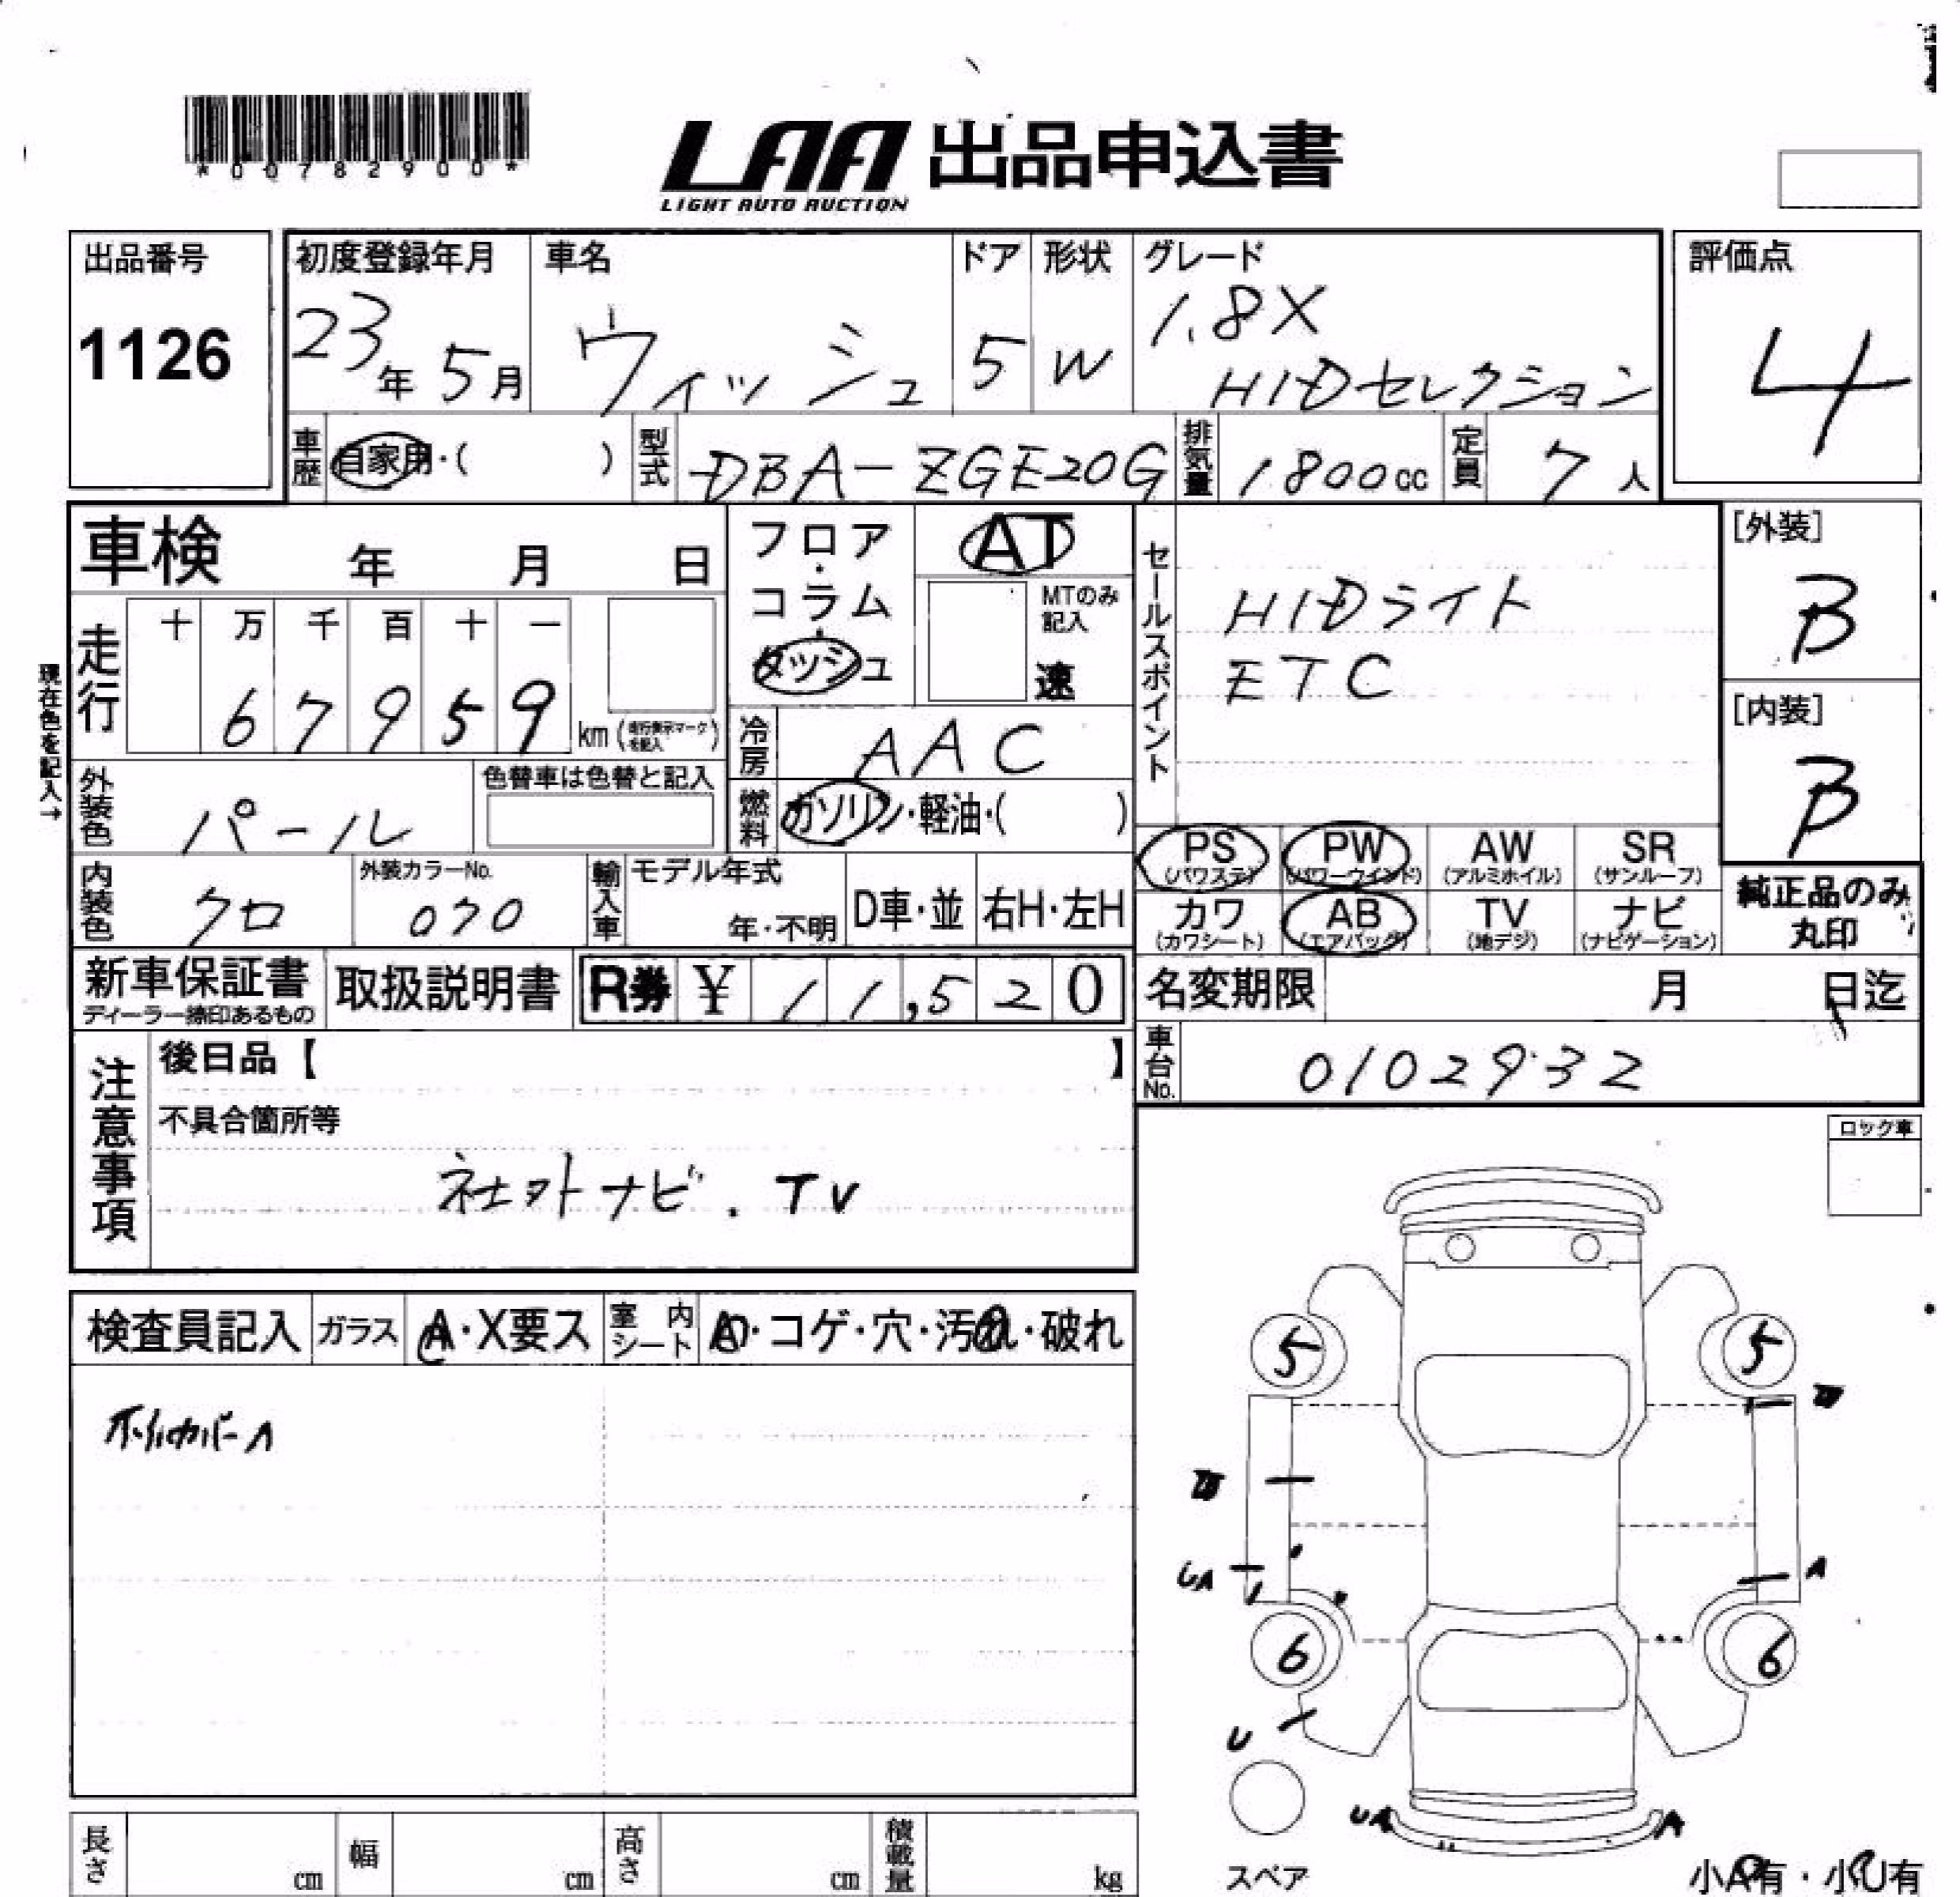 *00782900*
LAA 出品申込書
LIGHT AUTO AUCTION
出品番号
1126
初度登録年月
23年 5月
車名
ウィッシュ
ドア
5
形状
W
グレード
1.8X
HIDセレクション
評価点
4
車歴
自家用・( )
型式
DBA-ZGE20G
排気量
1800cc
定員
7人
車検 年 月 日
フロア・コラム・ダッシュ
AT
MTのみ記入
速
セールスポイント
HIDライト
ETC
[外装]
B
[内装]
B
現在色を記入→
走行
十 万 千 百 十 一
6 7 9 5 9
km(走行表示マークを記入)
冷房
AAC
外装色
パール
色替車は色替と記入
燃料
ガソリン・軽油・( )
PS
(パワステ)
PW
(パワーウインド)
AW
(アルミホイル)
SR
(サンルーフ)
カワ
(カワシート)
AB
(エアバッグ)
TV
(地デジ)
ナビ
(ナビゲーション)
純正品のみ
丸印
内装色
クロ
外装カラーNo.
070
輸入車
モデル年式
年・不明
D車・並
右H・左H
新車保証書
ディーラー捺印あるもの
取扱説明書
R券 ¥ 11,520
名変期限 月 日迄
車台No.
0102932
注意事項
後日品【 】
不具合箇所等
社外ナビ.TV
ロック車
検査員記入
ガラス
A・X要ス
室内シート
A・コゲ・穴・汚れ・破れ
ホイルカバーA
5
5
UA
A
6
6
U
UA
A
スペア
小A有・小U有
長さ cm
幅 cm
高さ cm
積載量 kg